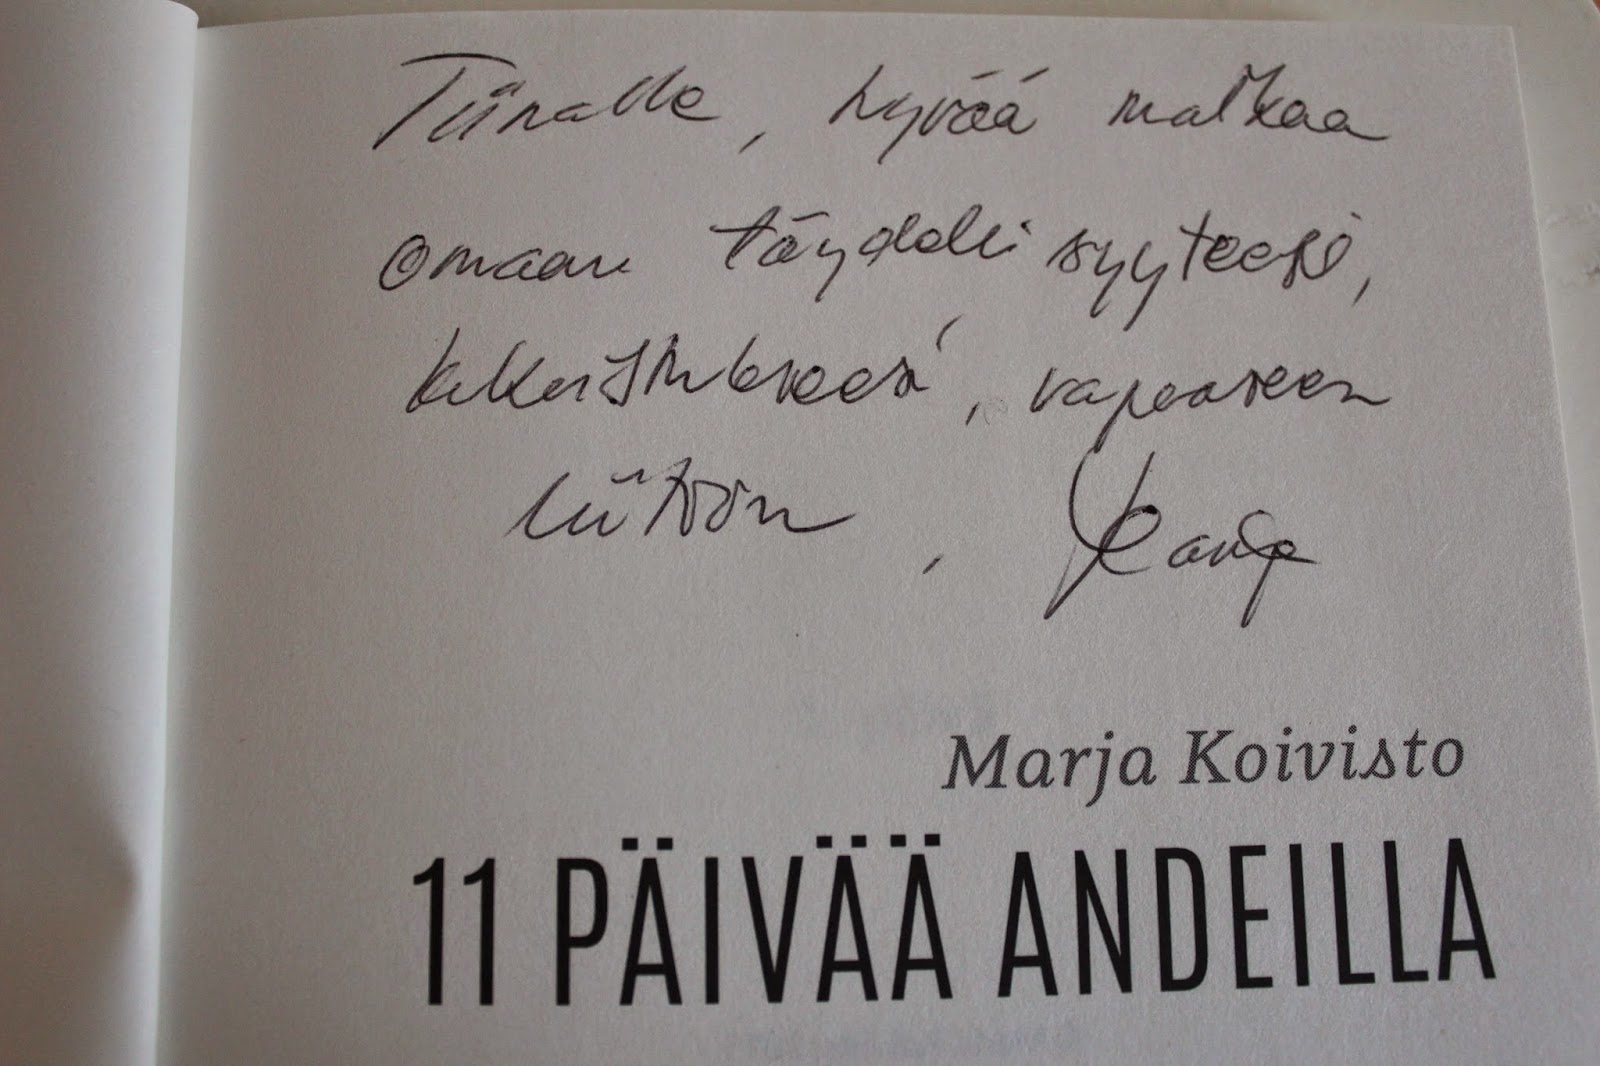 Tiinalle, hyvää matkaa
omaan täydellisyyteesi,
kukoistukseesi, vapaaseen
liitoon,
Marja Koivisto
11 PÄIVÄÄ ANDEILLA